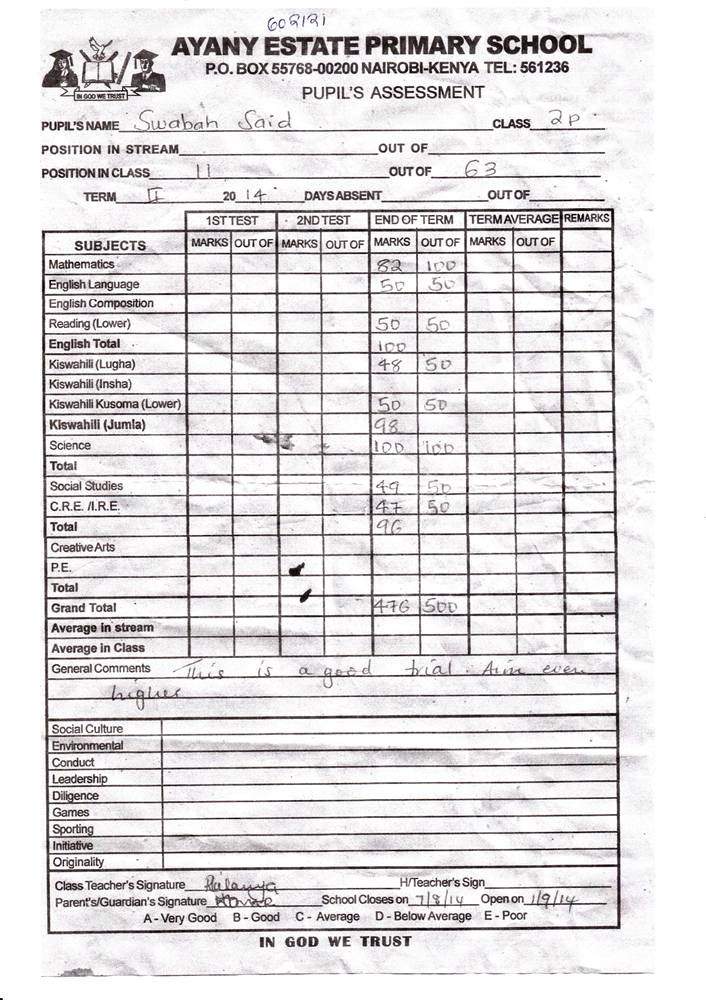 602121
AYANY ESTATE PRIMARY SCHOOL
P.O. BOX 55768-00200 NAIROBI-KENYA TEL: 561236
IN GOD WE TRUST
PUPIL'S ASSESSMENT
PUPIL'S NAME Swabah Said CLASS 2P
POSITION IN STREAM OUT OF
POSITION IN CLASS 11 OUT OF 63
TERM II 2014 DAYS ABSENT OUT OF
1ST TEST 2ND TEST END OF TERM TERM AVERAGE REMARKS
SUBJECTS MARKS OUT OF MARKS OUT OF MARKS OUT OF MARKS OUT OF
Mathematics 82 100
English Language 50 50
English Composition
Reading (Lower) 50 50
English Total 100
Kiswahili (Lugha) 48 50
Kiswahili (Insha)
Kiswahili Kusoma (Lower) 50 50
Kiswahili (Jumla) 98
Science 100 100
Total
Social Studies 49 50
C.R.E. /I.R.E. 47 50
Total 96
Creative Arts
P.E.
Total
Grand Total 476 500
Average in stream
Average in Class
General Comments This is a good trial. Aim even
higher
Social Culture
Environmental
Conduct
Leadership
Diligence
Games
Sporting
Initiative
Originality
Class Teacher's Signature H/Teacher's Sign
Parent's/Guardian's Signature School Closes on 7/8/14 Open on 1/9/14
A - Very Good B - Good C - Average D - Below Average E - Poor
IN GOD WE TRUST